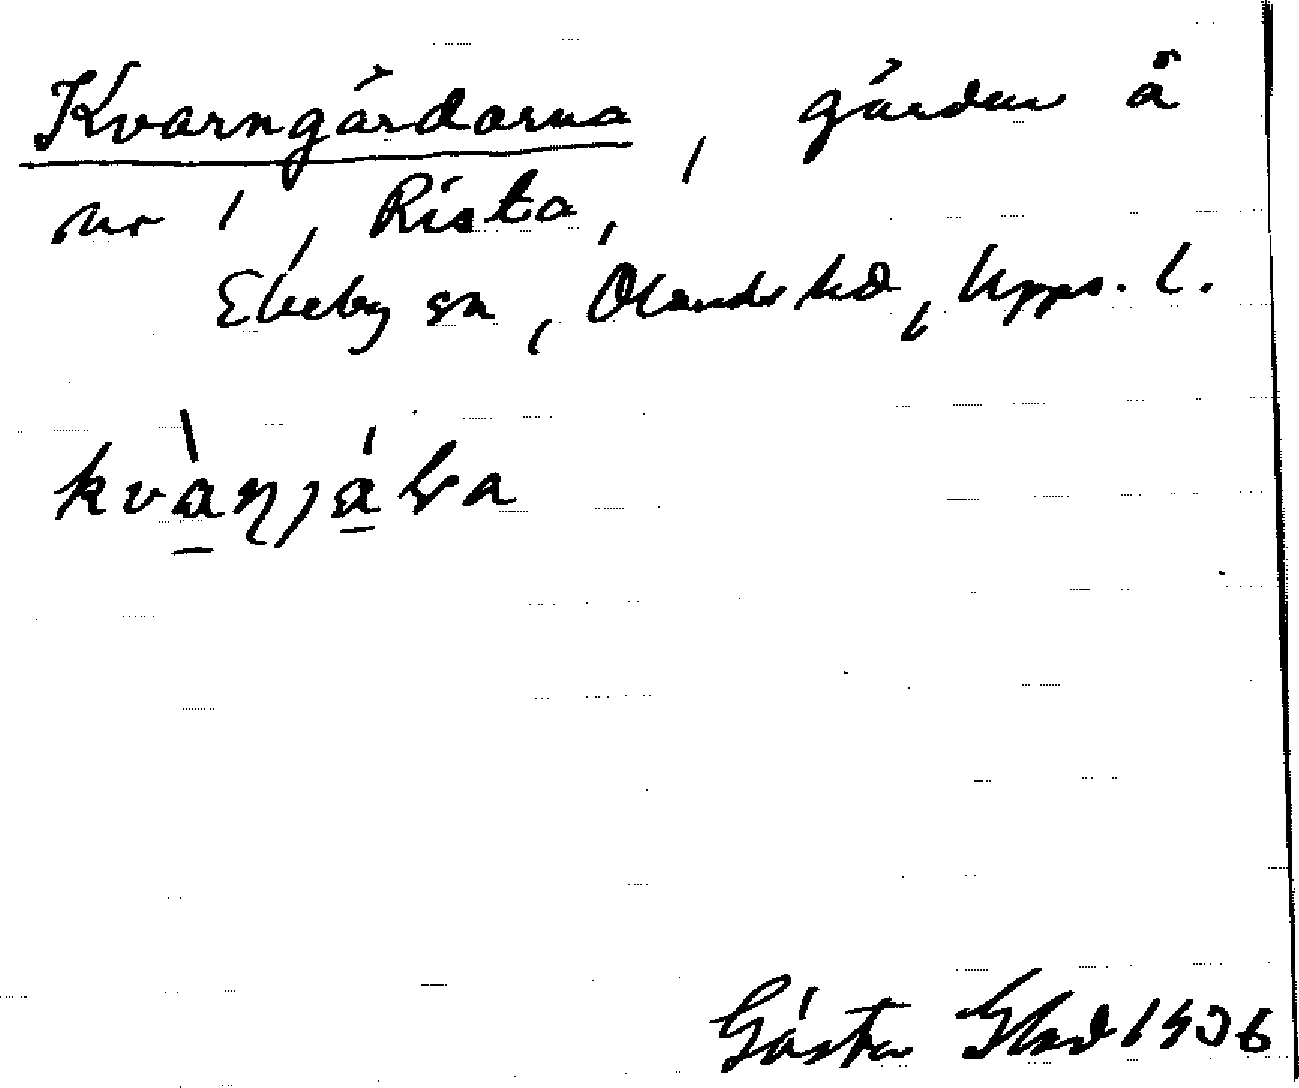 Kvarngårdarna, gården å
nr 1, Rista,
Ekeby sn, Olands hd, Upps. l.
Gösta Glad 1936